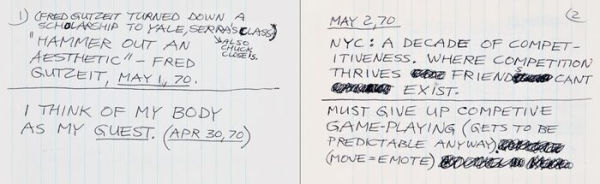 1) (FRED GUTZEIT TURNED DOWN A
SCHOLARSHIP TO YALE, SERRA'S CLASS)
"HAMMER OUT AN
→ ALSO
CHUCK
CLOSE IS.
AESTHETIC" – FRED
GUTZEIT, MAY 1, 70.
I THINK OF MY BODY
AS MY GUEST. (APR 30, 70)
(2
MAY 2, 70
NYC: A DECADE OF COMPET-
ITIVENESS. WHERE COMPETITION
THRIVES FRIENDS CANT
EXIST.
MUST GIVE UP COMPETIVE
GAME-PLAYING (GETS TO BE
PREDICTABLE ANYWAY).
(MOVE = EMOTE)